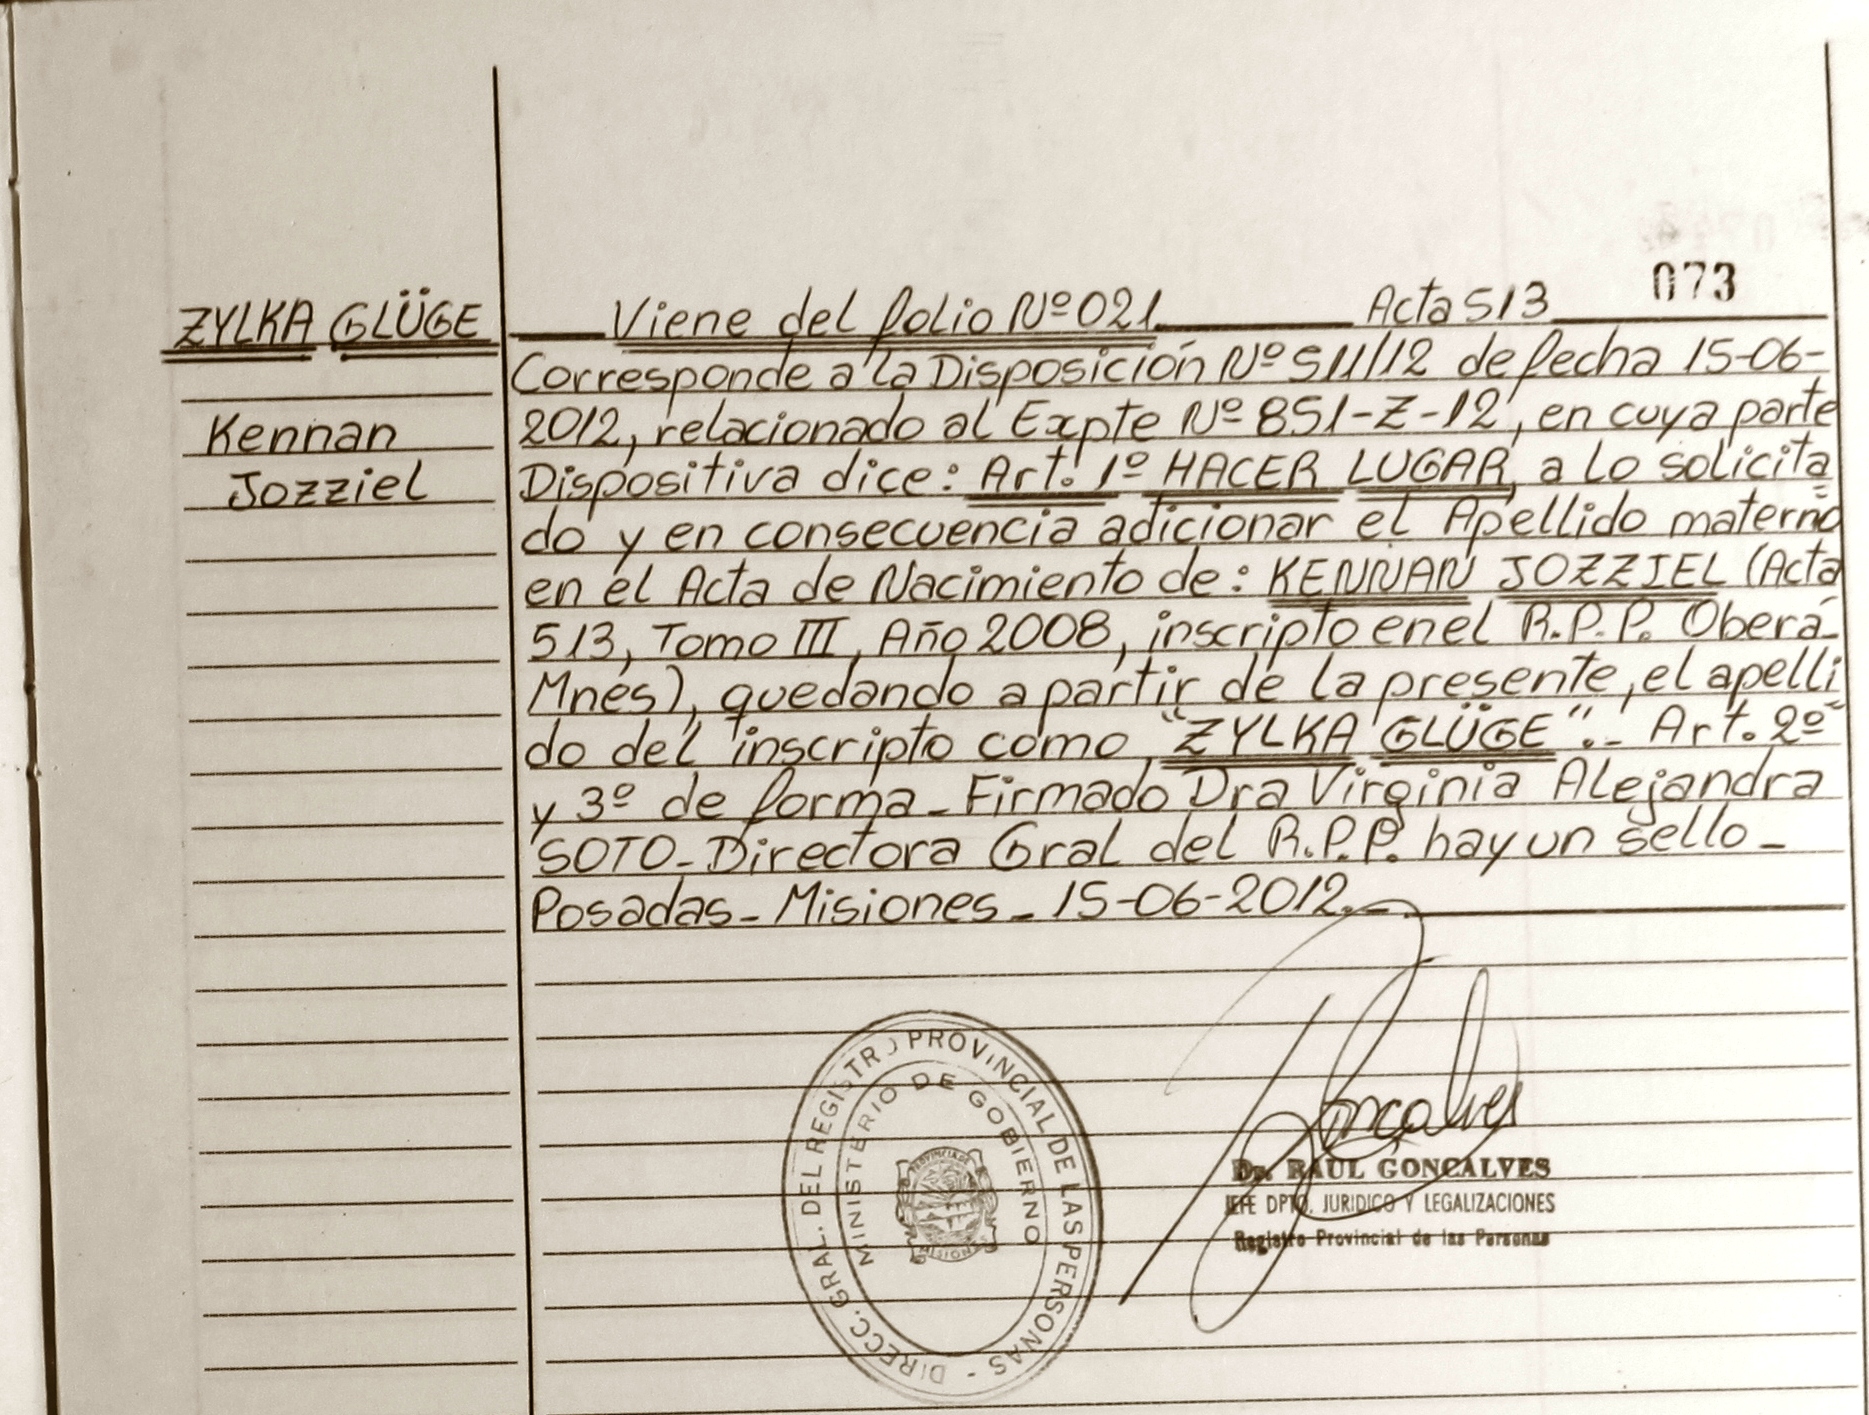 073
ZYLKA GLÜGE
Kennan
Jozziel
Viene del folio Nº 021 Acta 513
Corresponde a la Disposición Nº 511/12 de fecha 15-06-
2012, relacionado al Expte Nº 851-Z-12, en cuya parte
Dispositiva dice: Art. 1º HACER LUGAR, a lo solicita
do y en consecuencia adicionar el Apellido materno
en el Acta de Nacimiento de: KENNAN JOZZIEL (Acta
513, Tomo III, Año 2008, inscripto en el R.P.P. Oberá-
Mnes), quedando a partir de la presente, el apelli
do del inscripto como "ZYLKA GLÜGE".- Art. 2º
y 3º de forma - Firmado Dra Virginia Alejandra
SOTO - Directora Gral del R.P.P. hay un sello -
Posadas - Misiones - 15-06-2012.-
DIRECC. GRAL. DEL REGISTRO PROVINCIAL DE LAS PERSONAS -
MINISTERIO DE GOBIERNO
PROVINCIA DE
MISIONES
Goncalves
Dr. RAUL GONCALVES
JEFE DPTO. JURIDICO Y LEGALIZACIONES
Registro Provincial de las Personas